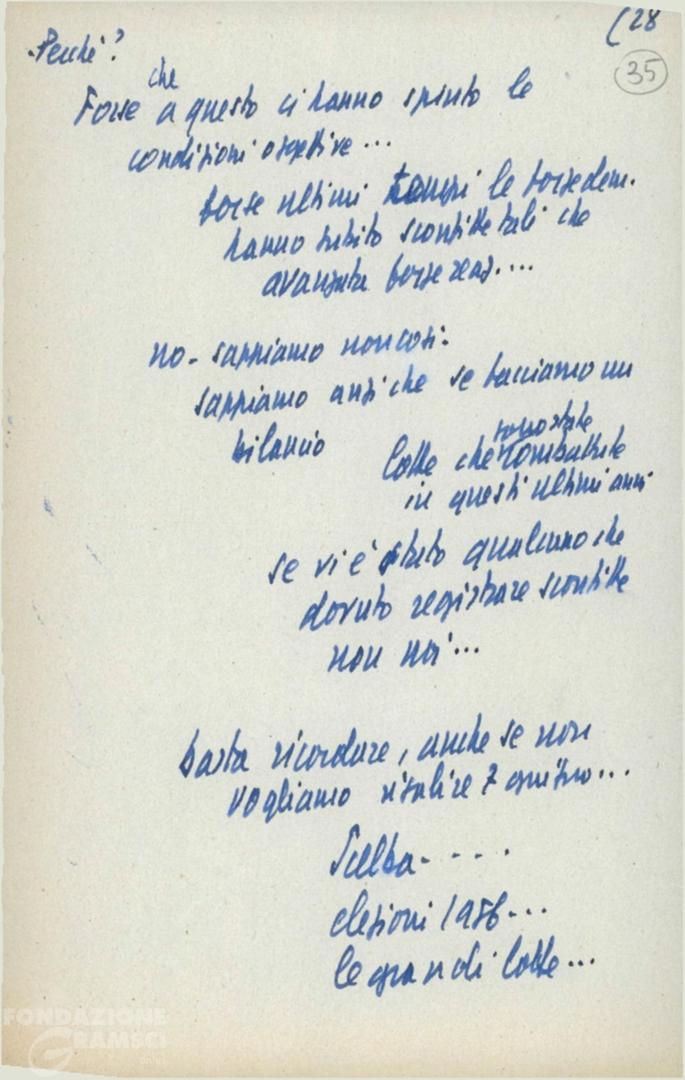 (28
35
- Perché?
che
Forse a questo ci hanno spinto le
condizioni oggettive...
forse ultimi tempi le forze dem.
hanno subito sconfitte tali che
avanzata forze reaz....
no - sappiamo non così:
sappiamo anzi che se facciamo un
bilancio
sono state
lotte che combattute
in questi ultimi anni
se vi è stato qualcuno che
dovuto registrare sconfitte
non noi...
basta ricordare, anche se non
vogliamo risalire 7 giugno...
Scelba - - - .
elezioni 1956...
le grandi lotte...
FONDAZIONE
GRAMSCI